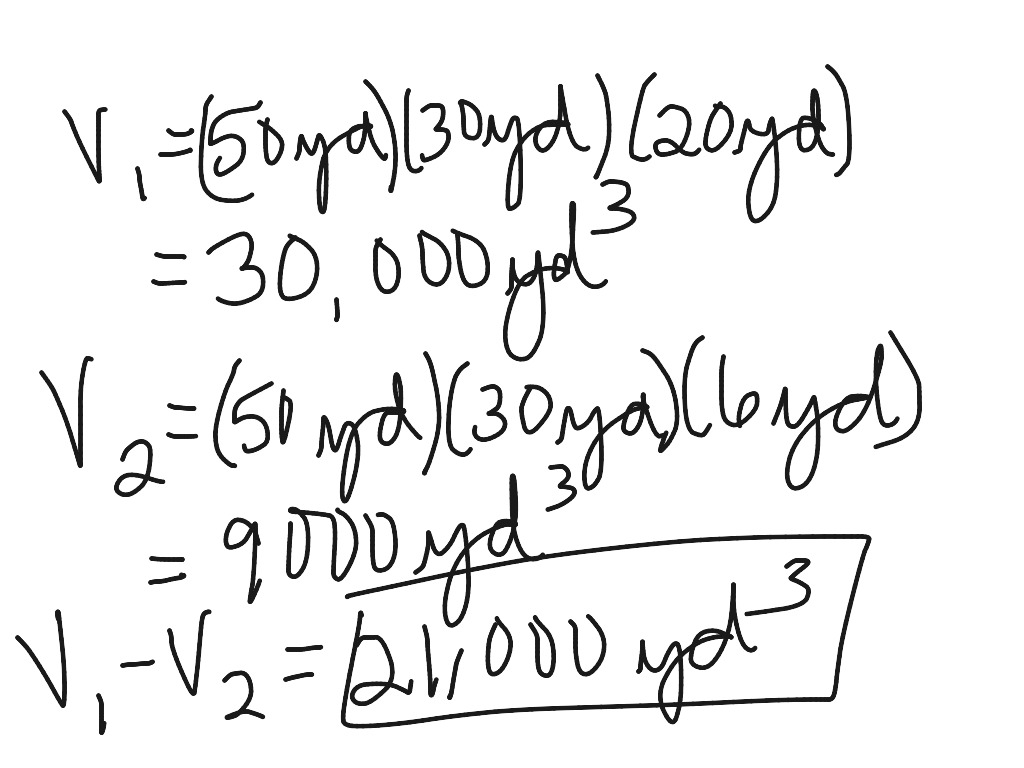 V₁ = (50yd)(30yd)(20yd)
= 30,000yd³
V₂ = (50yd)(30yd)(6yd)
= 9000yd³
V₁ - V₂ = 21,000 yd³